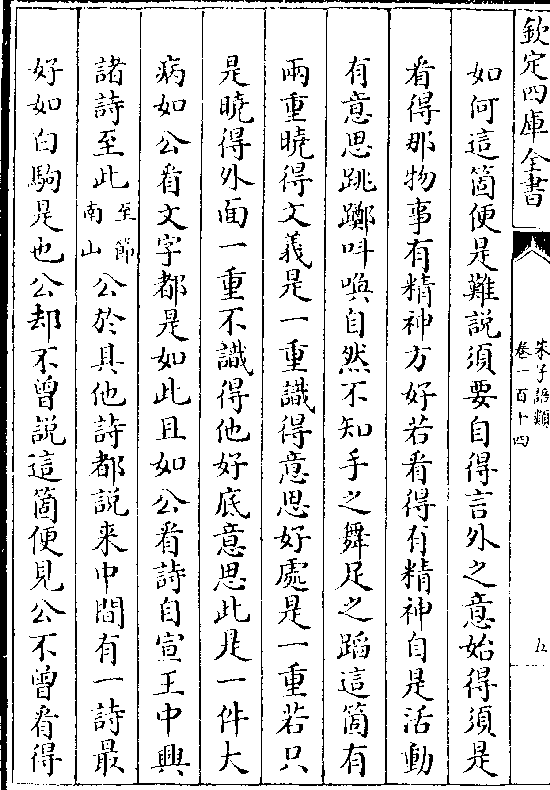 欽定四庫全書
朱子語類
卷一百十四
五
如何這箇便是難説須要自得言外之意始得須是
看得那物事有精神方好若看得有精神自是活動
有意思跳躑呌喚自然不知手之舞足之蹈這箇有
兩重曉得文義是一重識得意思好處是一重若只
是曉得外面一重不識得他好底意思此是一件大
病如公看文字都是如此且如公看詩自宣王中興
諸詩至此至節南山公於其他詩都説来中間有一詩最
好如白駒是也公却不曾説這箇便見公不曾看得